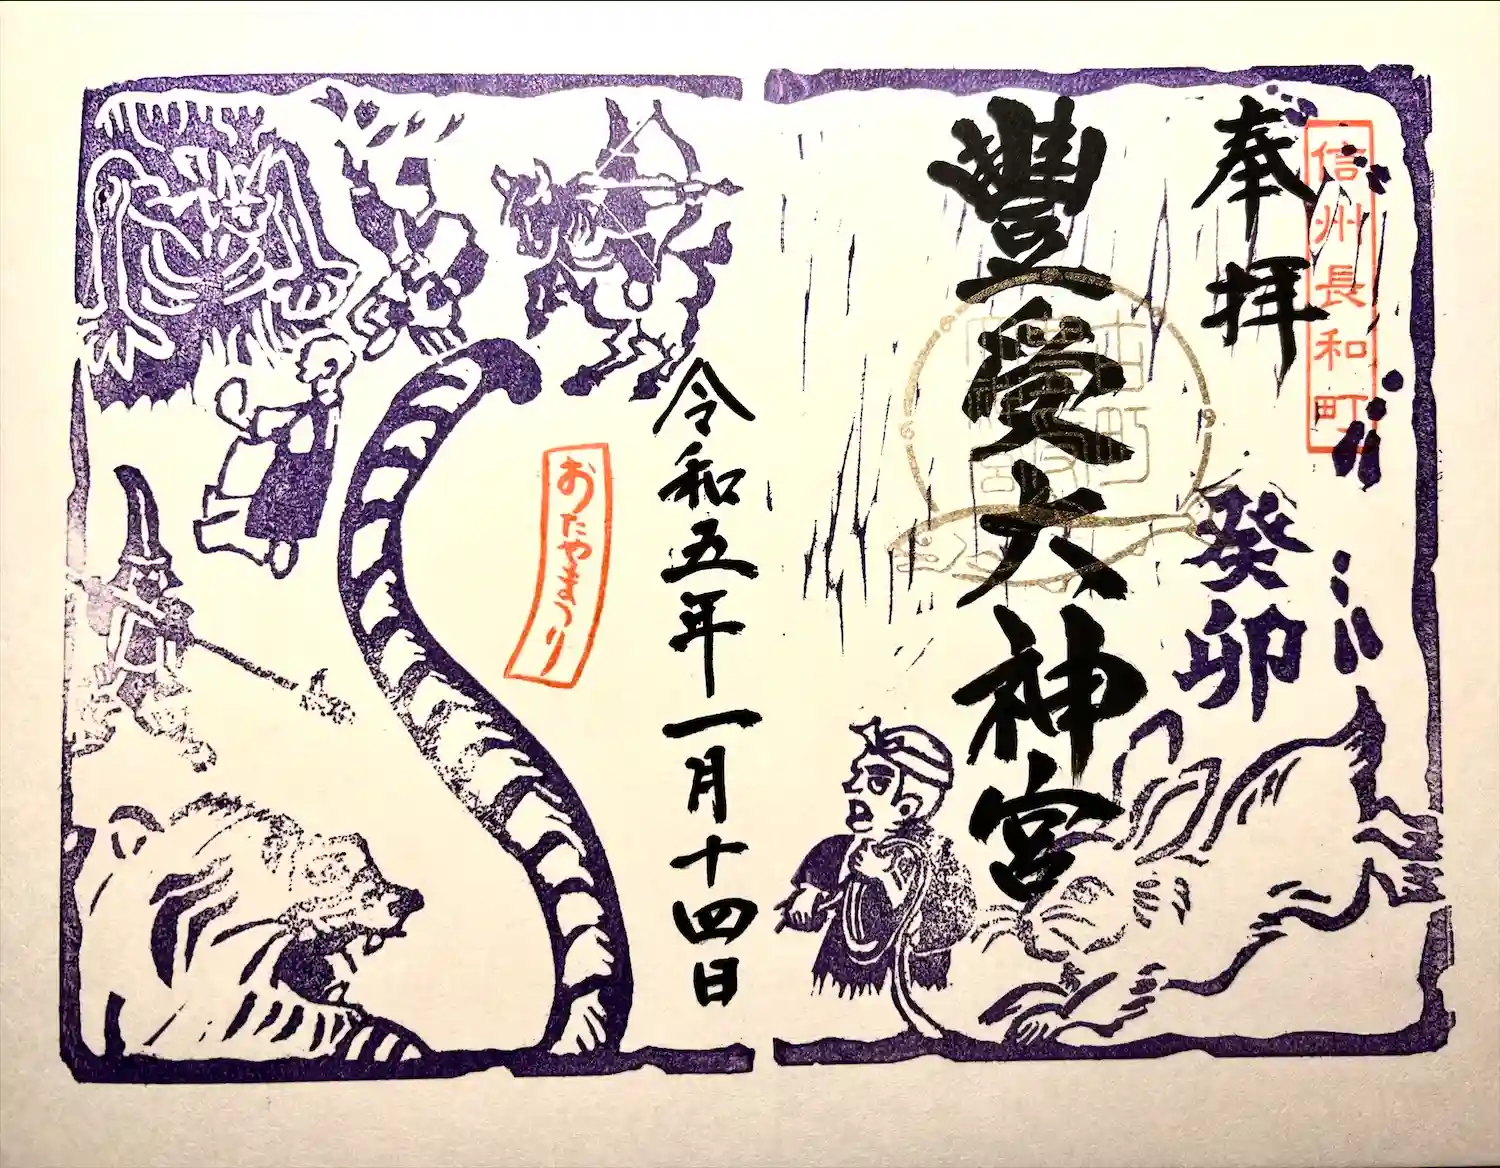 奉拝
信州長和町
癸卯
豐受大神宮
令和五年一月十四日
おたやまつり